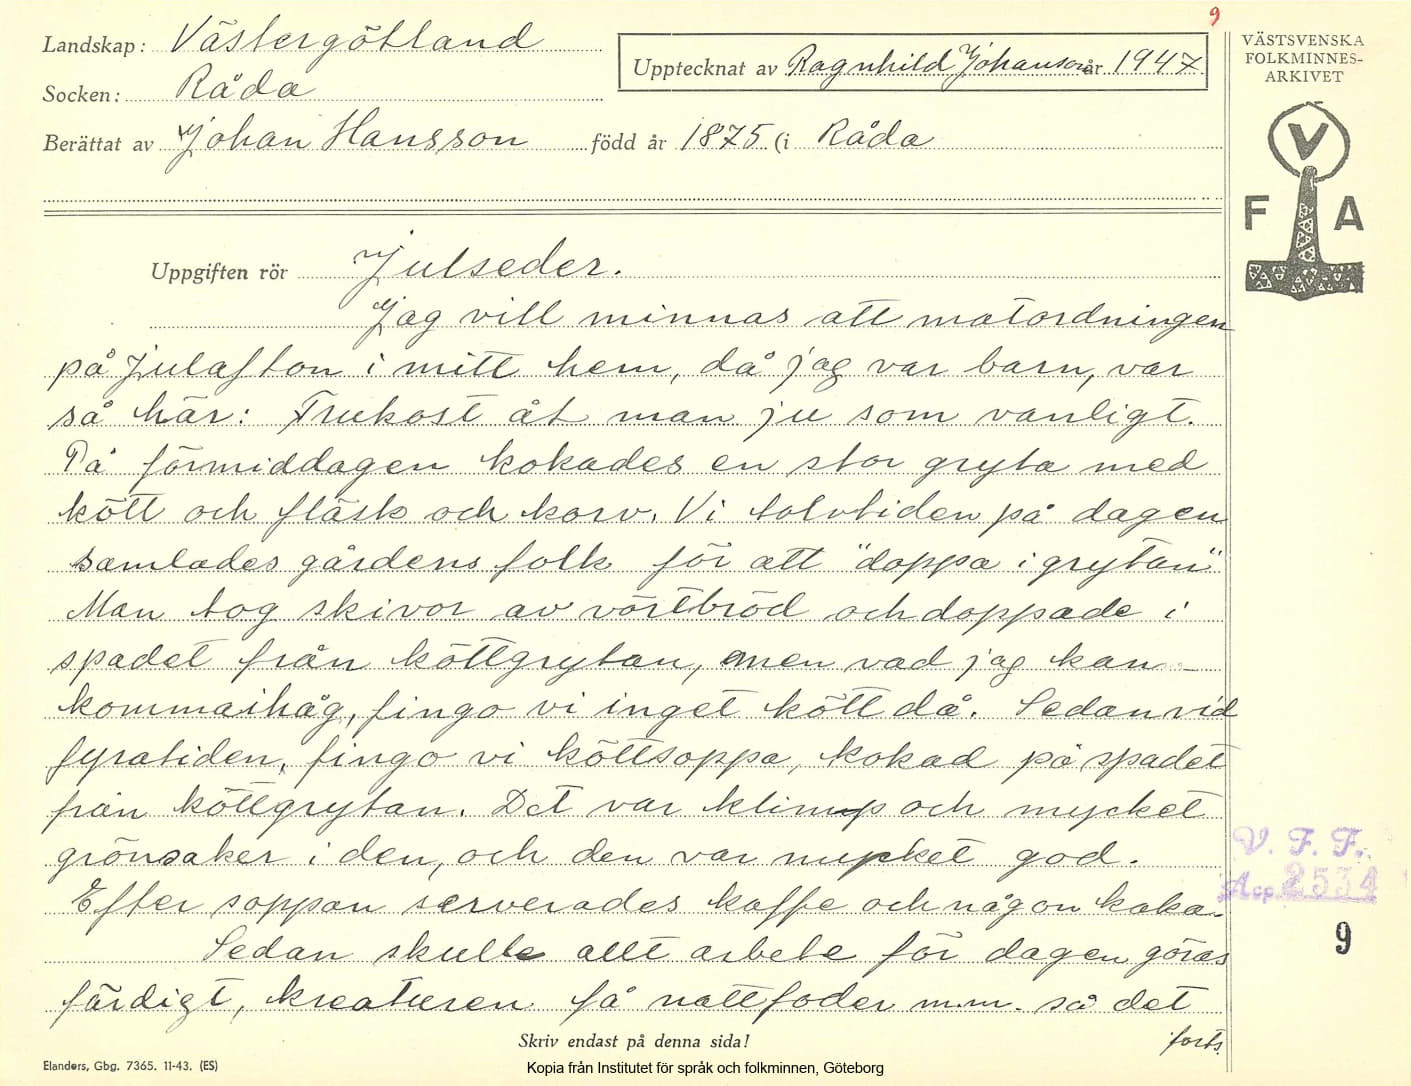 9
Landskap: Västergötland
Socken: Råda
Upptecknat av Ragnhild Johanson år 1947
Berättat av Johan Hansson född år 1875 (i Råda
VÄSTSVENSKA
FOLKMINNES-
ARKIVET
V
F A
Uppgiften rör Julseder.
Jag vill minnas att matordningen
på Julafton i mitt hem, då jag var barn, var
så här: Frukost åt man ju som vanligt.
På förmiddagen kokades en stor gryta med
kött och fläsk och korv. Vi tolvtiden på dagen
samlades gårdens folk för att "doppa i grytan"
Man tog skivor av vörtbröd och doppade i
spadet från köttgrytan, men vad jag kan
kommaihåg, fingo vi inget kött då. Sedan vid
fyratiden, fingo vi köttsoppa, kokad på spadet
från köttgrytan. Det var klimp och mycket
grönsaker i den, och den var mycket god.
Efter soppan serverades kaffe och någon kaka.
Sedan skulle allt arbete för dagen göras
färdigt, kreaturen få nattfoder m.m. så det
forts.
V. F. F.
Acc. 2534
9
Skriv endast på denna sida!
Elanders, Gbg. 7365. 11-43. (ES)
Kopia från Institutet för språk och folkminnen, Göteborg